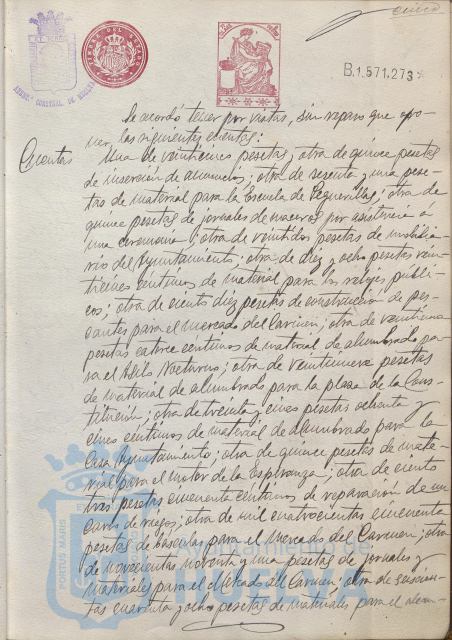 cinco
B.1.571.273
Se acordó tener por vistas, sin reparo que opo-
ner, las siguientes cuentas:
Cuentas
Una de veinticinco pesetas, otra de quince pesetas
de inserción de anuncios; otra de sesenta y una pese-
tas de material para la Escuela de Peguerillas; otra de
quince pesetas de jornales de maceros por asistencia a
una ceremonia; otra de veintidos pesetas de mobilia-
rio del Ayuntamiento; otra de diez y ocho pesetas vein-
ticinco céntimos de material para los relojes públi-
cos; otra de ciento diez pesetas de construcción de pes-
cantes para el mercado del Carmen; otra de veintiuna
pesetas catorce céntimos de material de alumbrado pa-
ra el Asilo Nocturno; otra de veintinueve pesetas
de material de alumbrado para la plaza de la Cons-
titución; otra de treinta y cinco pesetas ochenta y
cinco céntimos de material de alumbrado para la
Casa Ayuntamiento; otra de quince pesetas de mate-
rial para el motor de la Esperanza; otra de ciento
tres pesetas cincuenta céntimos de reparación de un
carro de riegos; otra de mil cuatrocientas cincuenta
pesetas de básculas para el Mercado del Carmen; otra
de novecientas noventa y una pesetas de jornales y
materiales para el Mercado del Carmen; otra de
tas cuarenta y ocho pesetas de materiales para el
Ayuntamiento de
HUELVA
PORTUS MARIS